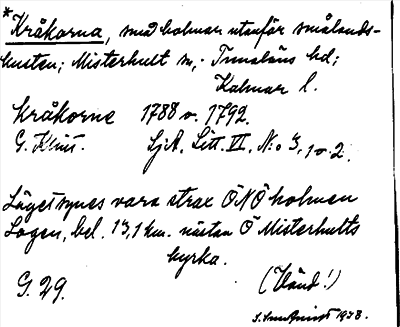 * Kråkorna, små holmar utanför smålands-
kusten; Misterhult sn; Tunaläns hd;
Kalmar l.
Kråkorne 1788 o. 1792.
G. Klint. SjA. Litt. VI. N:o 3, 1 o. 2.
Läget synes vara strax ÖNÖ holmen
Logen, bel. 13,1 km. nästan Ö Misterhults
kyrka.
G. 29. (Vänd!)
1938.